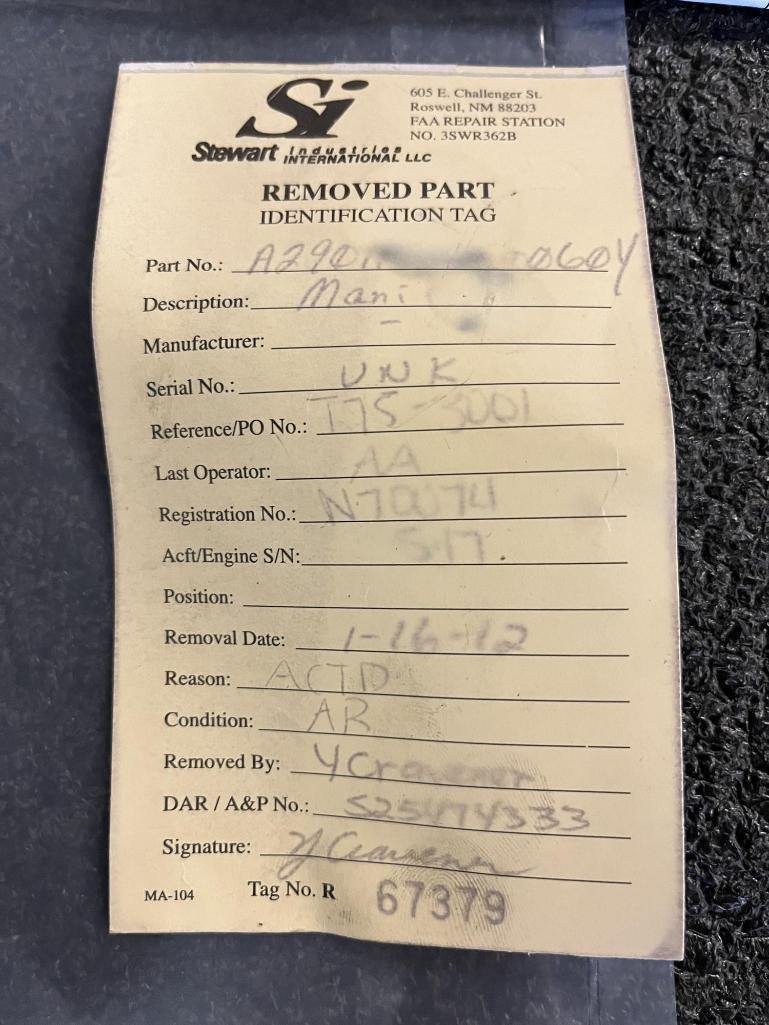 Si
Stewart Industries INTERNATIONAL LLC
605 E. Challenger St.
Roswell, NM 88203
FAA REPAIR STATION
NO. 3SWR362B
REMOVED PART
IDENTIFICATION TAG
Part No.:
Description: Mani
Manufacturer: -
Serial No.: UNK
Reference/PO No.: T75-3001
Last Operator: AA
Registration No.:
Acft/Engine S/N: 517
Position:
Removal Date: 1-16-12
Reason: ACTD
Condition: AR
Removed By: Y Cravener
DAR / A&P No.: 525474333
Signature: Y Cravener
MA-104 Tag No. R 67379